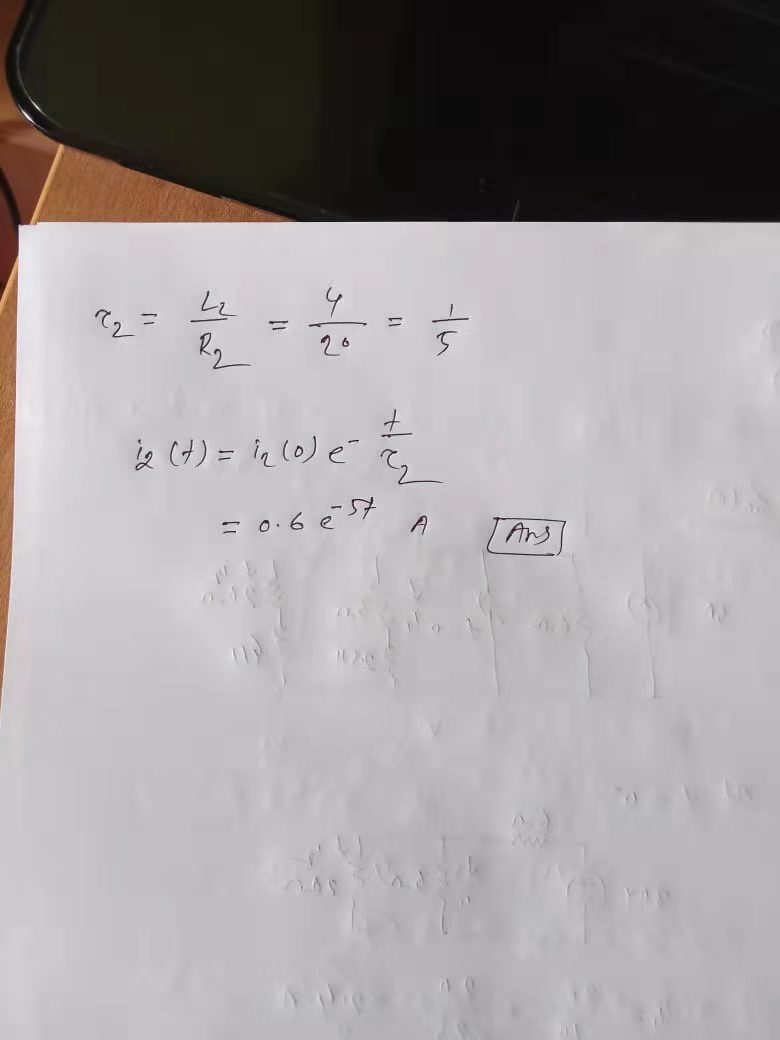 τ₂ = L₂/R₂ = 4/20 = 1/5
i₂(t) = i₂(0) e^-t/τ₂
= 0.6 e^-5t A Ans